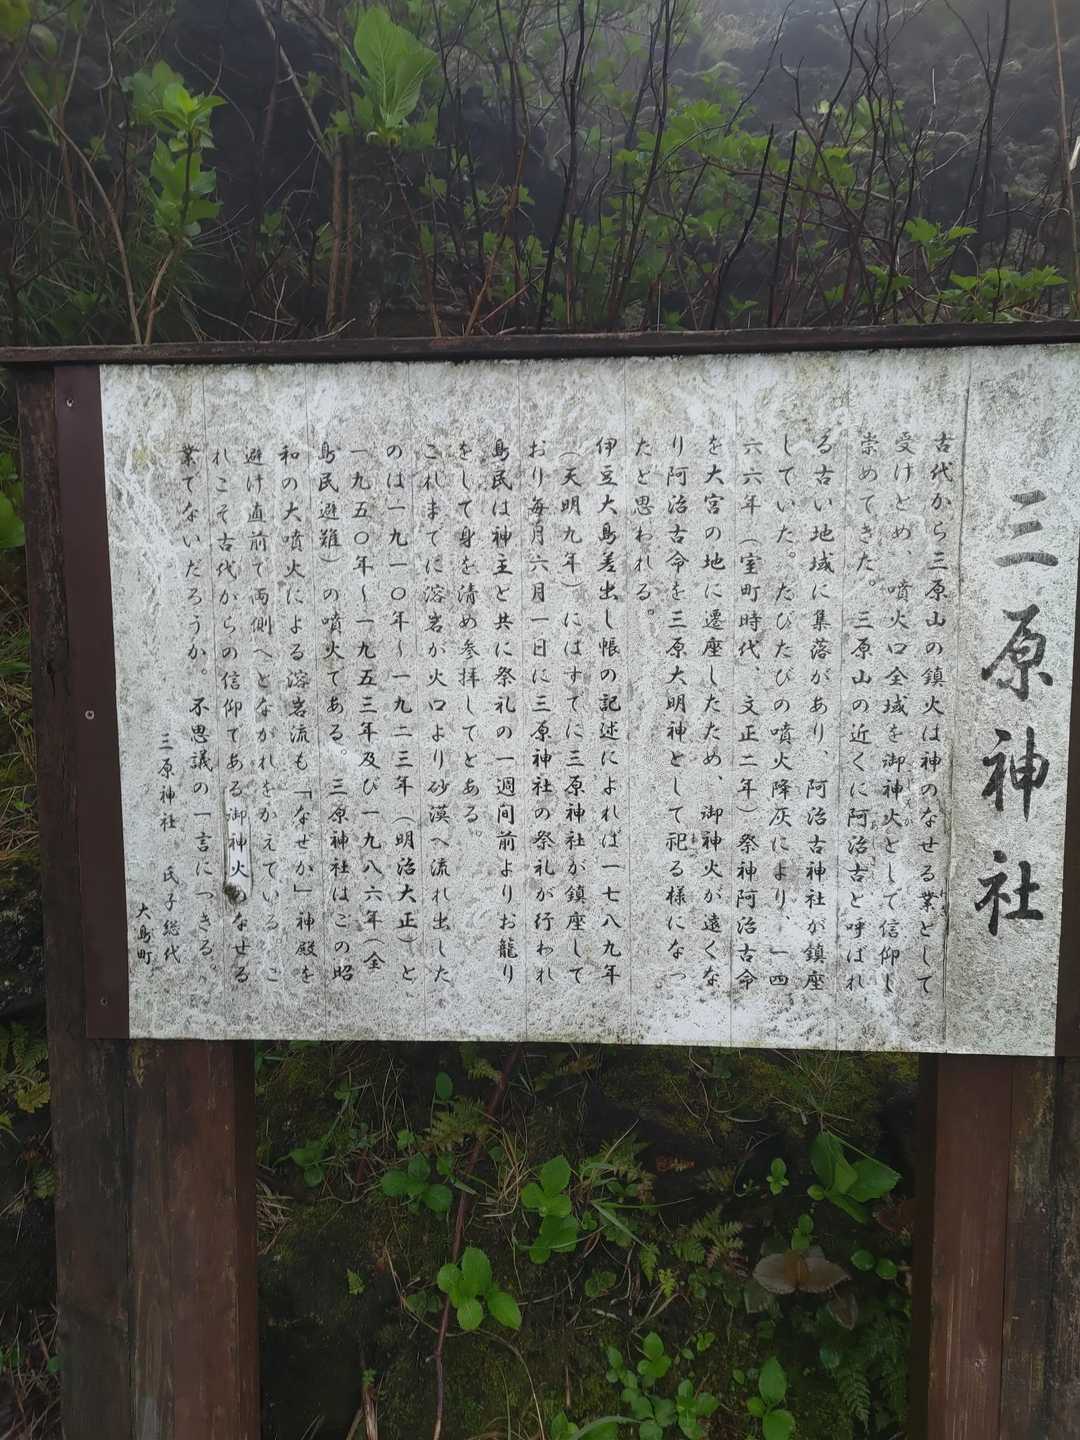 三原神社
古代から三原山の鎮火は神のなせる業として
受けとめ、噴火口全域を御神火として信仰し
崇めてきた。三原山の近くに阿治古と呼ばれ
る古い地域に集落があり、阿治古神社が鎮座
していた。たびたびの噴火降灰により、一四
六六年（室町時代、文正二年）祭神阿治古命
を大宮の地に遷座したため、御神火が遠くな
り阿治古命を三原大明神として祀る様になっ
たと思われる。
伊豆大島差出し帳の記述によれば一七八九年
（天明九年）にはすでに三原神社が鎮座して
おり毎月六月一日に三原神社の祭礼が行われ
島民は神主と共に祭礼の一週間前よりお籠り
をして身を清め参拝してとある。
これまでに溶岩が火口より砂漠へ流れ出した
のは一九一〇年〜一九二三年（明治大正）と
一九五〇年〜一九五三年及び一九八六年（全
島民避難）の噴火である。三原神社はこの昭
和の大噴火による溶岩流も「なぜか」神殿を
避け直前で両側へとながれをかえている。こ
れこそ古代からの信仰である御神火のなせる
業でないだろうか。不思議の一言につきる。
三原神社 氏子総代
大島町